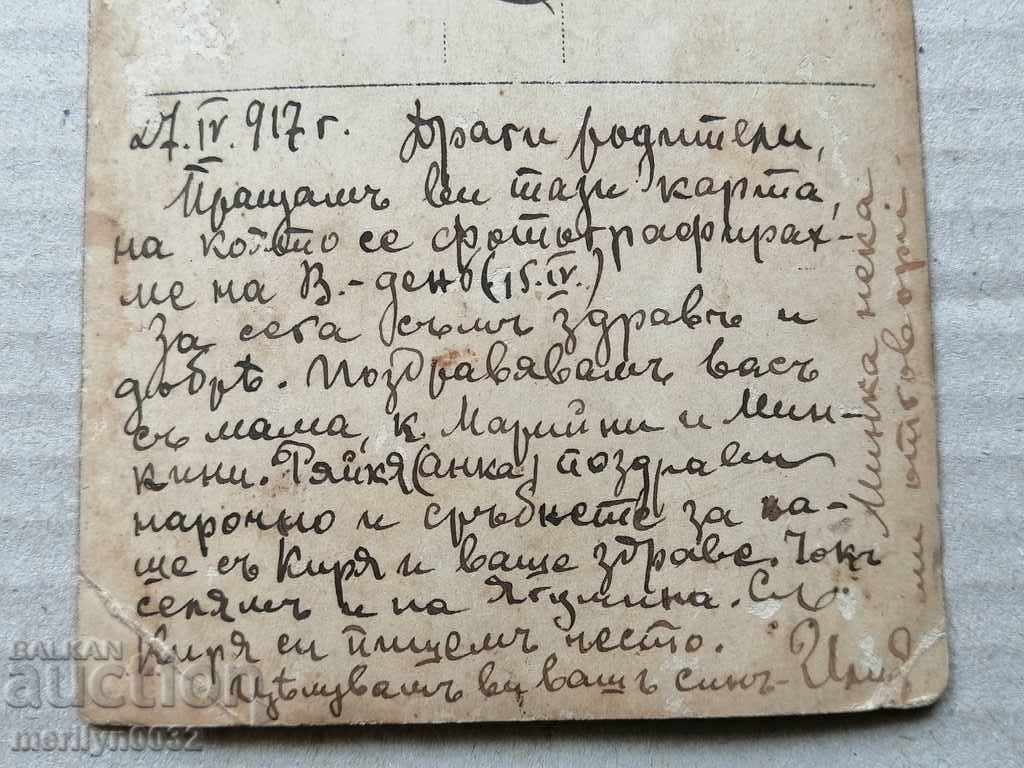 27.IV.917 г. Драги родители,
Пращамъ ви тази карта,
на която се фотографирах-
ме на В.-день (15.IV.)
За сега съмъ здравъ и
добрѣ. Поздравявамъ васъ
съ мама, к. Марийни и Мин-
кини. Тяйкя (Анка) поздрави
нарочно и сръбнете за на-
ше съ Киря и ваше здраве. Чокъ
селямъ и на
Киря си пишемъ често.
Цѣлувамъ ви вашъ синъ
Минка нека
ми отговори.
BALKAN
auction
merilyn0032